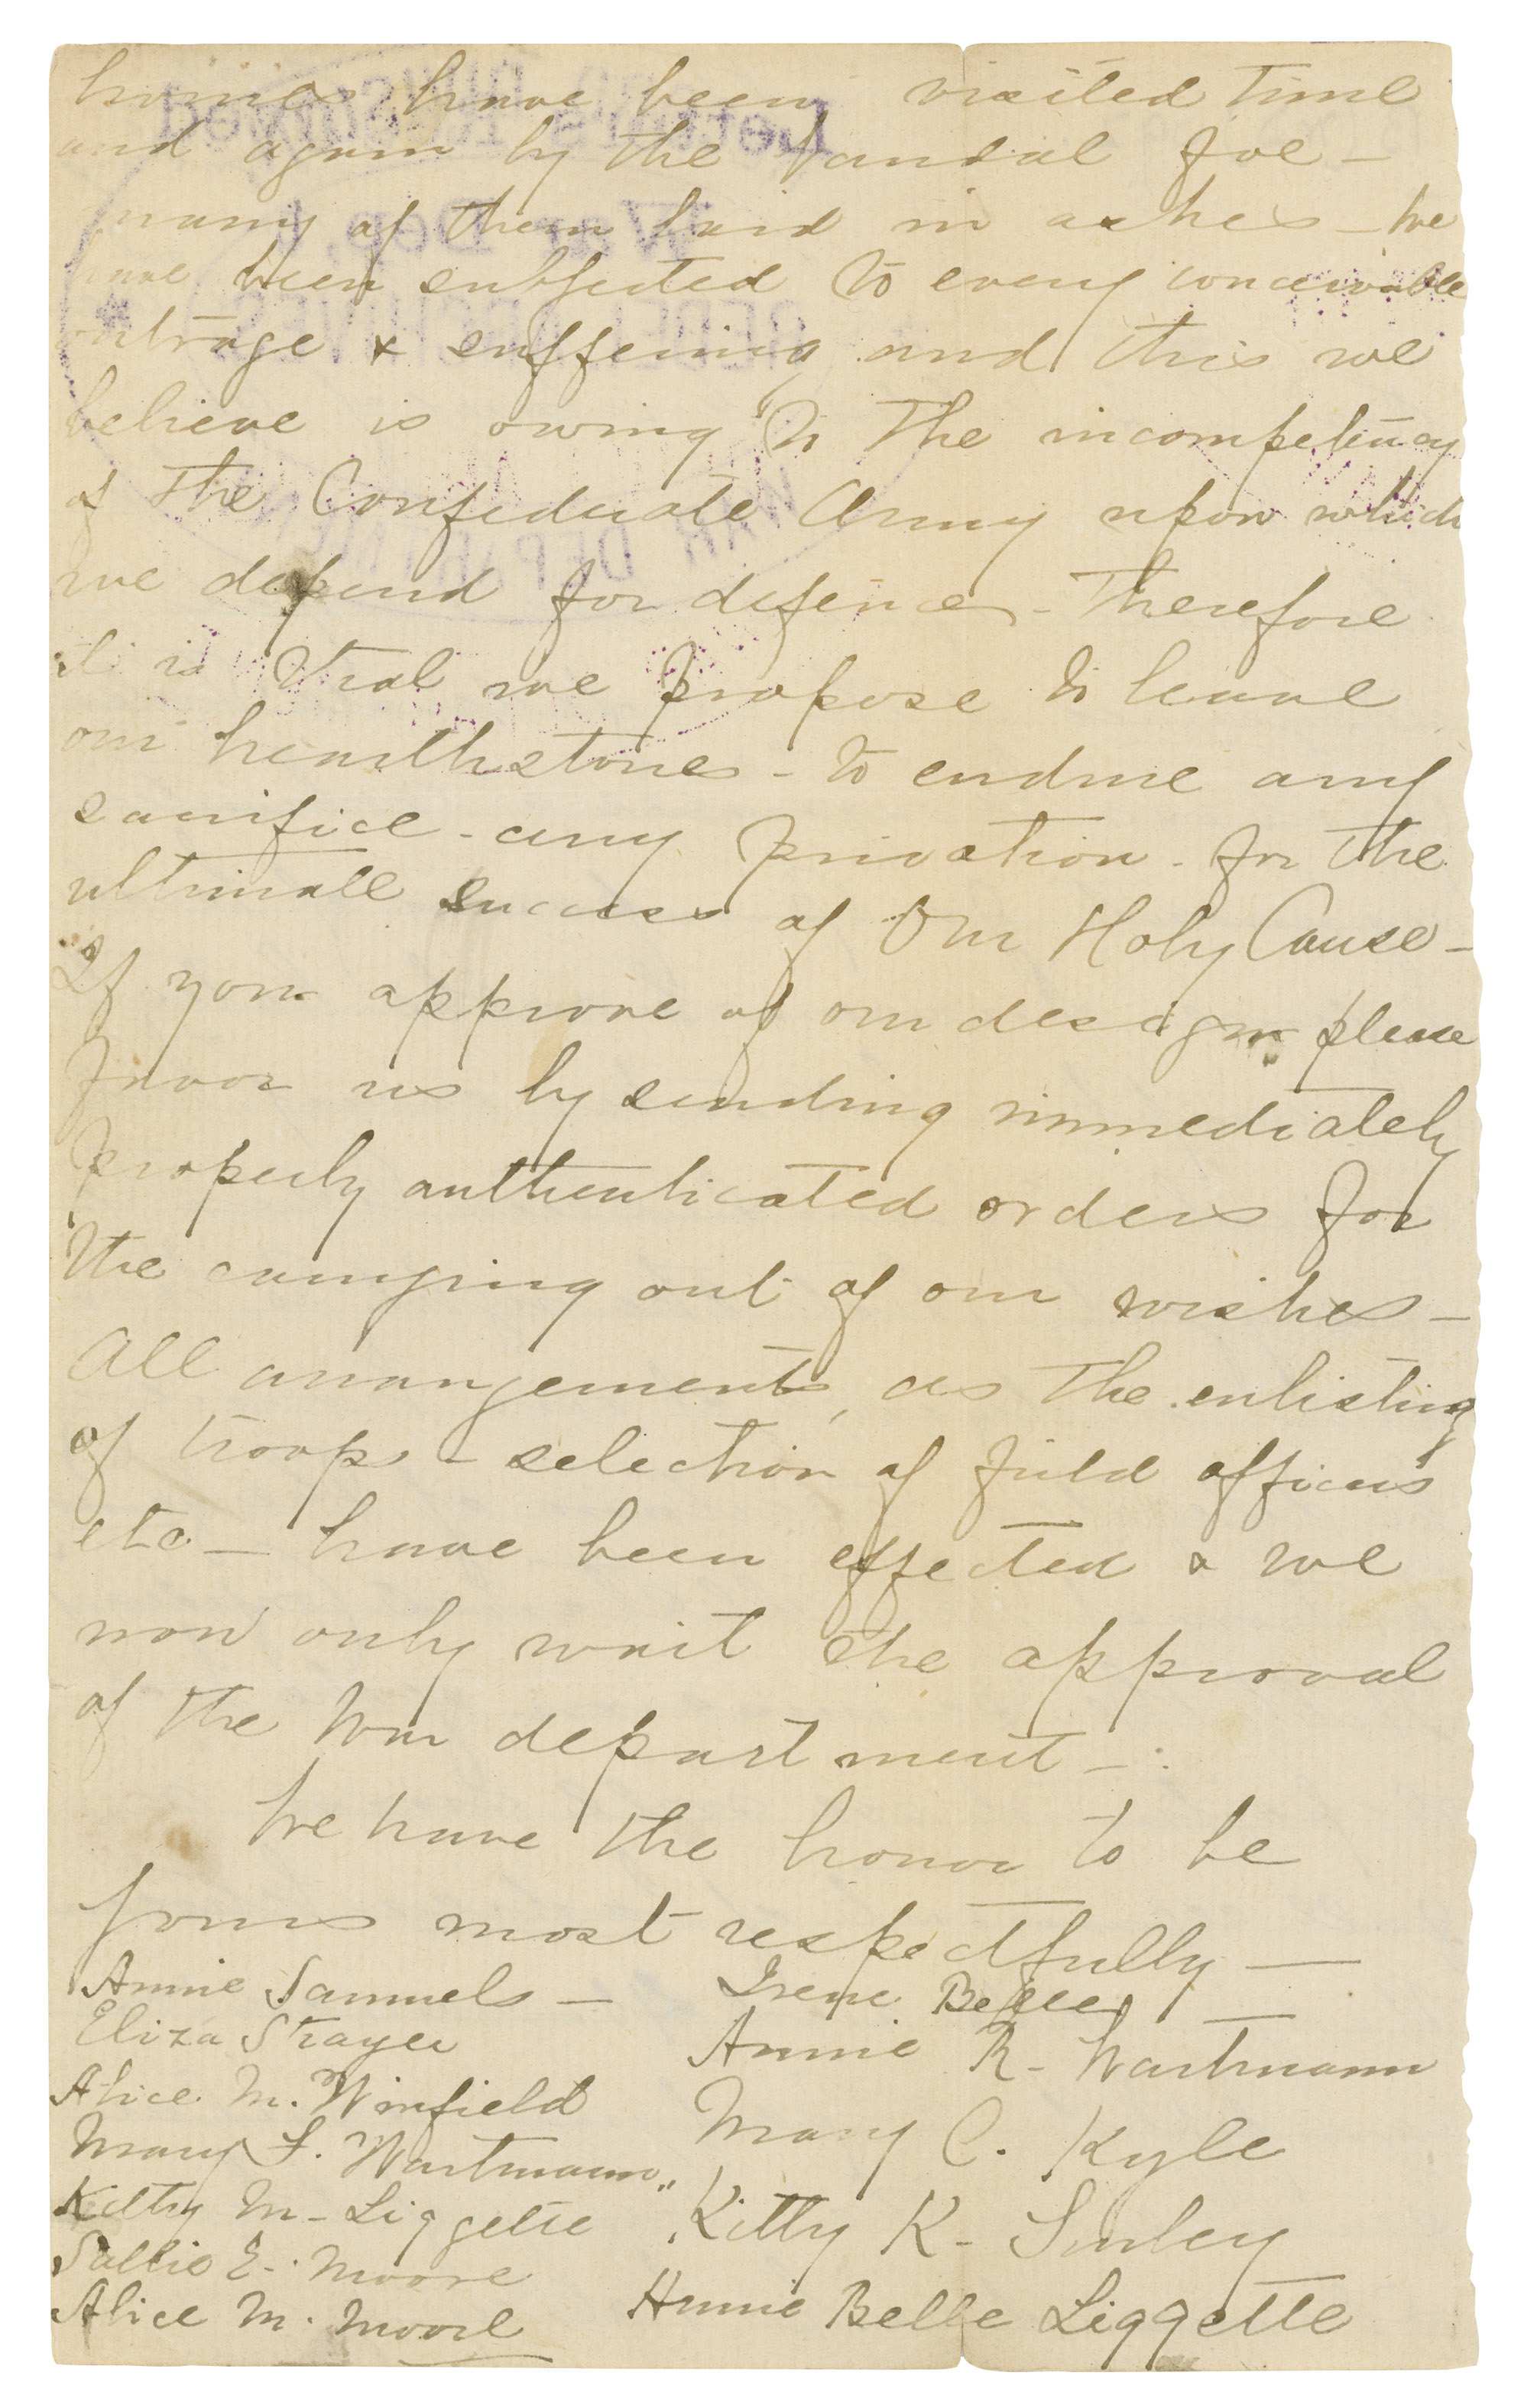 homes have been visited time
and again by the Vandal foe -
many of them laid in ashes - We
have been subjected to every conceivable
outrage & suffering and this we
believe is owing to the incompetency
of the Confederate Army upon which
we depend for defence - Therefore
it is that we propose to leave
our hearthstones - to endure any
sacrifice - any privation - for the
ultimate success of Our Holy Cause -
If you approve of our design please
favor us by sending immediately
properly authenticated orders for
the carrying out of our wishes -
All arrangements, as the enlisting
of troops - selection of field officers
etc - have been effected & we
now only wait the approval
of the War department -
We have the honor to be
Yours most respectfully -
Annie Samuels - Irene Bell
Eliza Strayer
Annie R - Wartmann
Alice M. Winfield
Mary C. Kyle
Mary F. Wartmann
Kitty K -
Kitty M - Liggette
Sallie E. Moore
Annie Belle Liggette
Alice M. Moore
War Dep